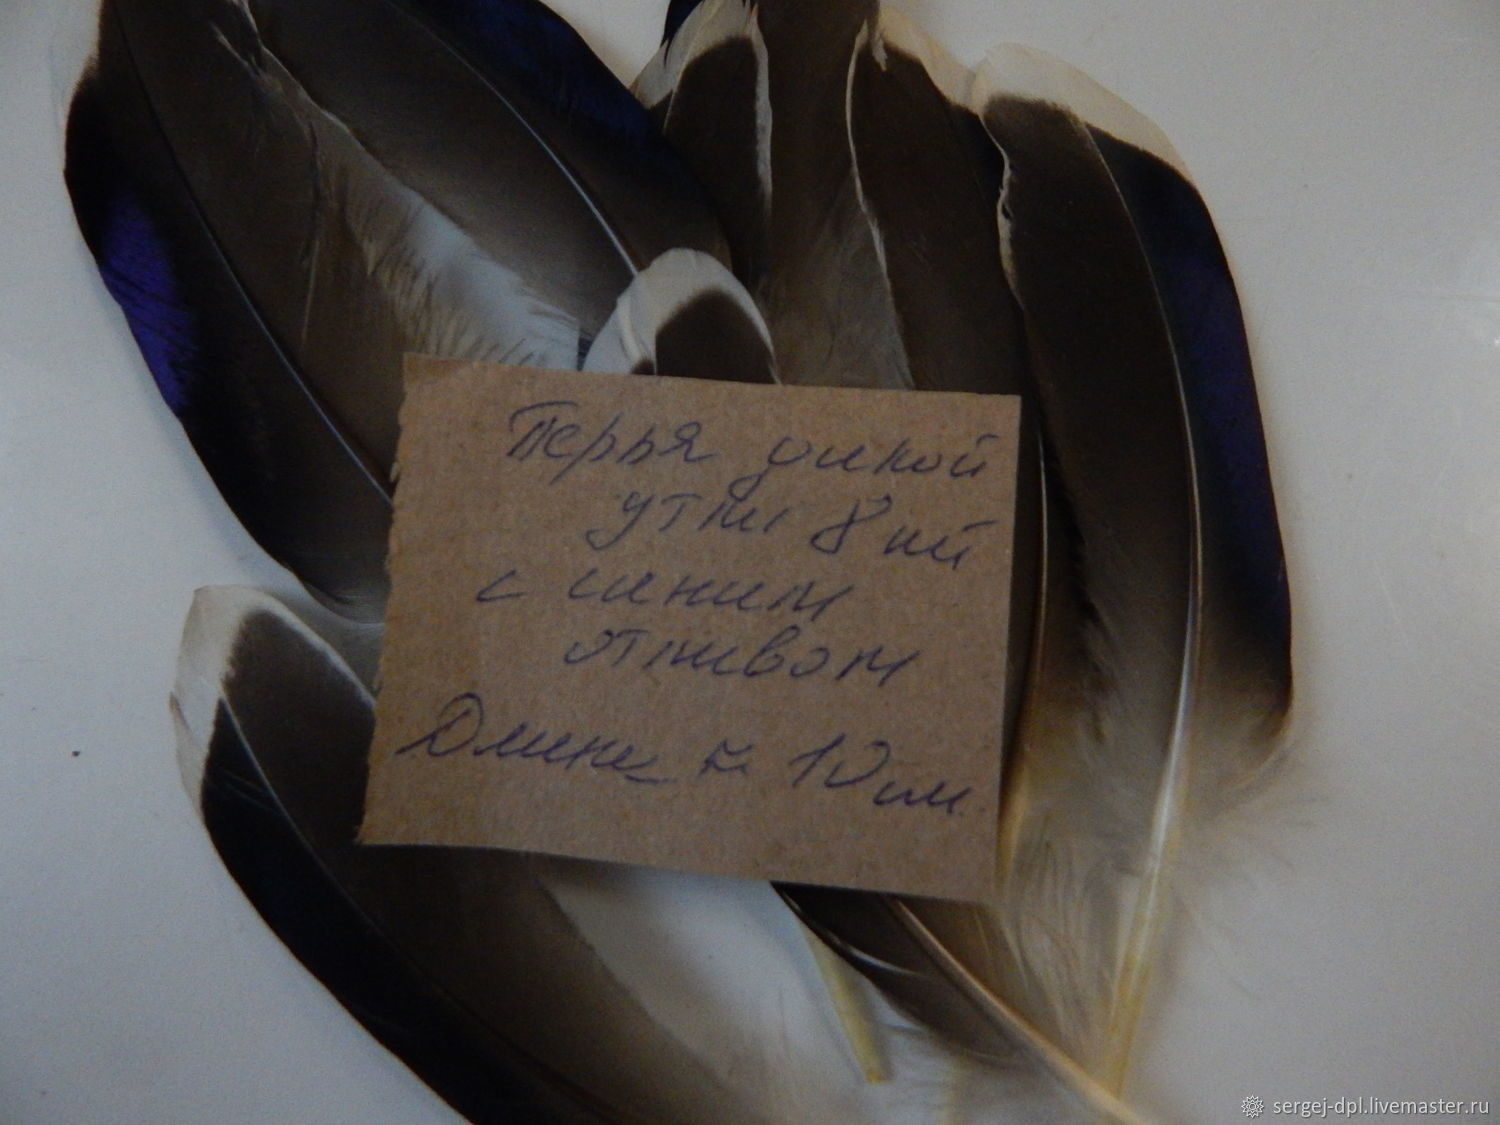 Перья дикой
утки 8 шт
с синим
отливом
Длина ≈ 10 см.
sergej-dpl.livemaster.ru